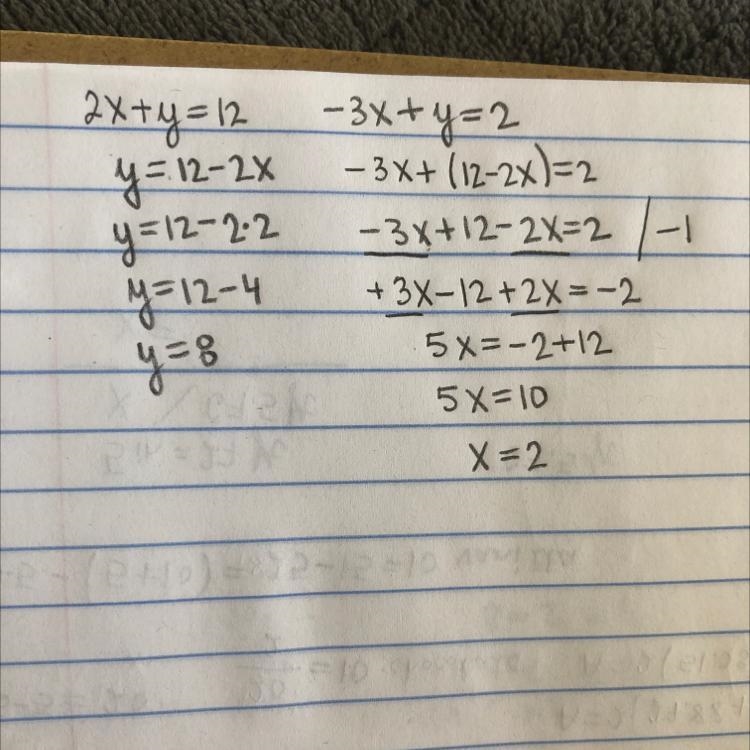 2x+y=12 -3x+y=2
y=12-2x -3x+(12-2x)=2
y=12-2·2 -3x+12-2x=2 /-1
y=12-4 +3x-12+2x=-2
y=8 5x=-2+12
5x=10
x=2